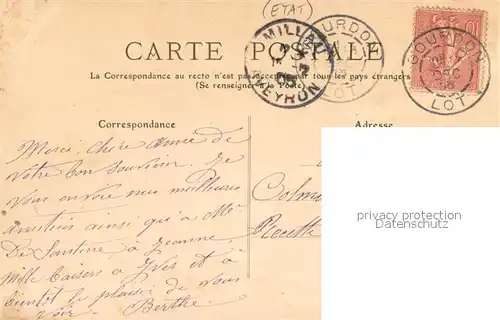 (ETAT)
CARTE POSTALE
MILLAU
AVEYRON
GOURDON
LOT
GOURDON
DEC
LOT
10
La Correspondance au recto n'est pas acceptée par tous les pays étrangers
(Se renseigner à la Poste)
Correspondance
Adresse
Merci, chère amie de
votre bon souvenir. Je
vous envoie mes meilleures
amitiés ainsi qu'à Mr
De Santine à Jeanne,
Mille baisers à Yves et à
bientôt le plaisir de vous
voir - Berthe.
Colm
Recette
privacy protection
Datenschutz